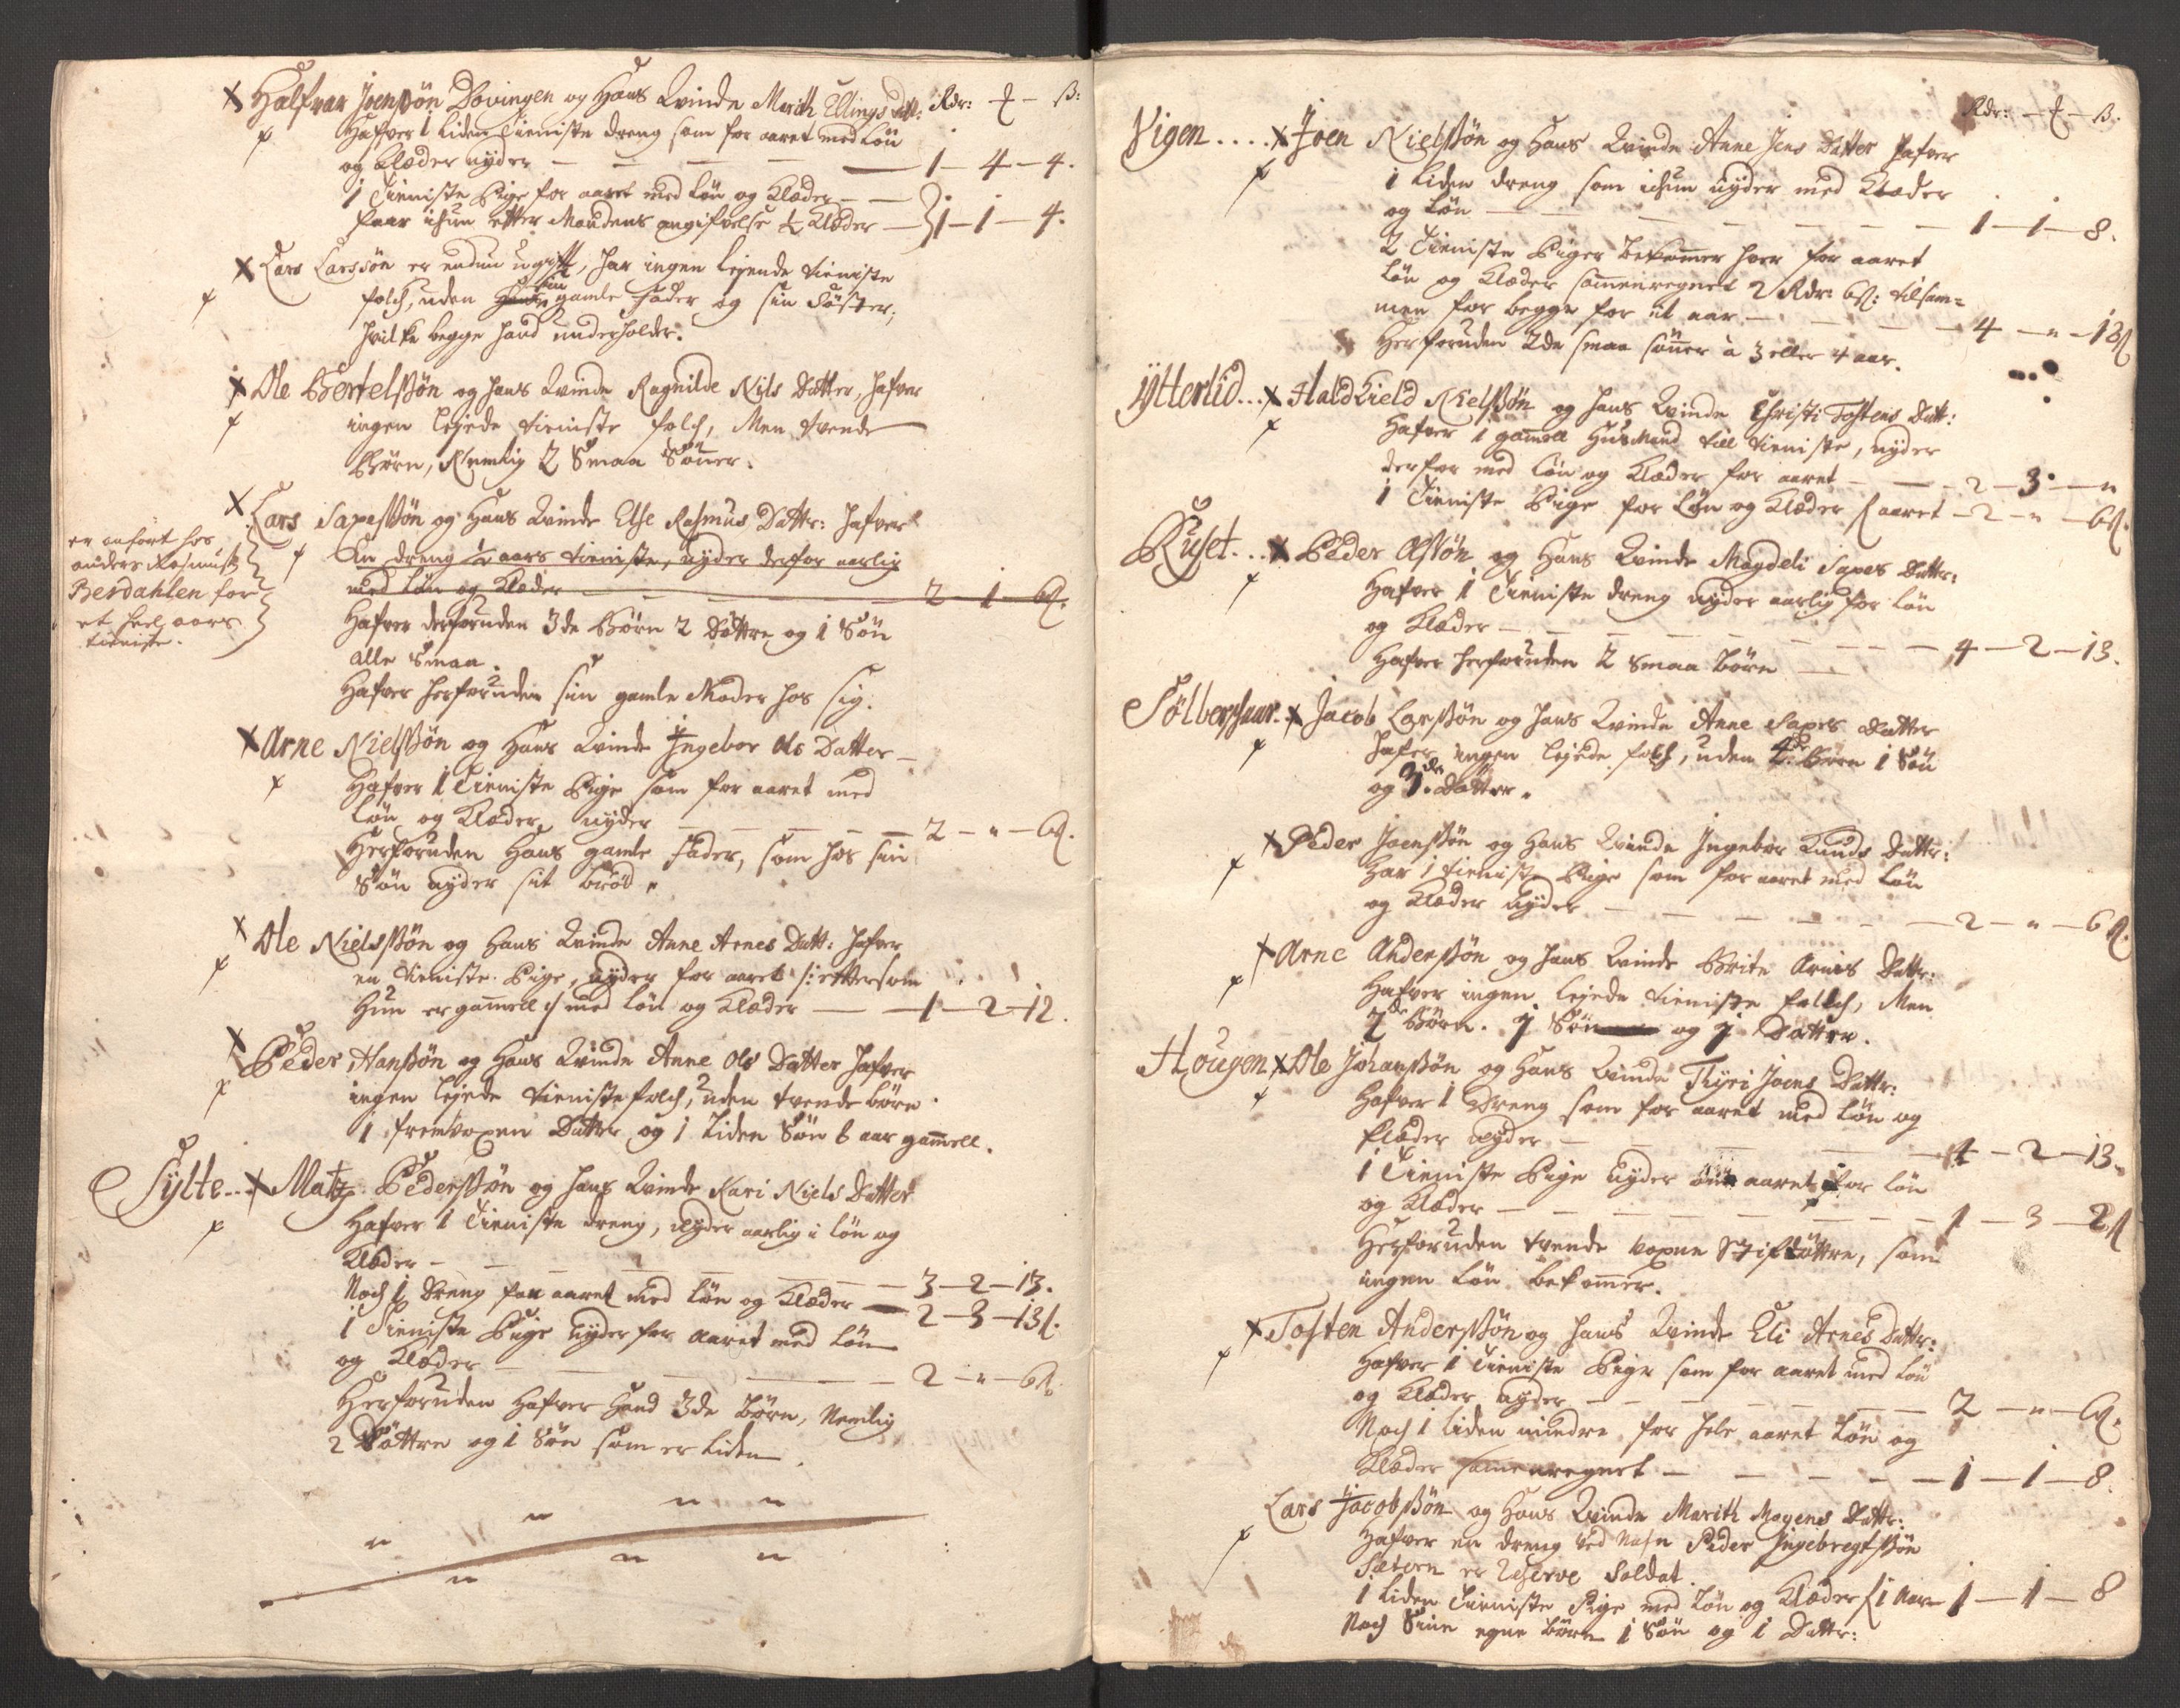 Halfvar Joenssön Dovingen og Hans Qvinde Marith Ellings datt: Rdr: ₰ - ß:
Hafver 1 liden tieniste dreng som for aaret med Løn
og Klæder nyder — — — — 1 — 4 — 4.
1 Tieniste Pige for aaret med Løn og Klæder — —
faar ichun etter Mandens angifvelse ½ Klæder — } 1 — 1 — 4.
Lars Larssön er endnu ugift, har ingen lejende tieniste
folch, uden sin gamle Fader og sin Söster,
hvilke begge hand underholder.
Ole Bertelssön og hans Qvinde Ragnilde Nils Datter, hafver
ingen lejede tieniste folch, Men tvende
Børn, Nemlig 2 Smaa Sönner.
Lars Saxessön og Hans Qvinde Else Rasmus Dattr: hafver
En dreng ½ aars tieniste, nyder derfor aarlig
med Løn og Klæder — — — — 2 — 1 — 6ß.
er anført hos
anders Rasmusß
Berdahlen for
et heel aars
tieniste.
Hafver derforuden 3de Børn 2 Döttre og 1 Sön
alle Smaa.
Hafver herforuden sin gamle Moder hos sig.
Arne Nielssön og Hans Qvinde Ingebor Ols Datter —
Hafver 1 Tieniste Pige som for aaret med
Løn og Klæder nyder — — — — 2 — " — 6ß.
Herforuden Hans gamle Fader, som hos sin
Sön nyder sit brød.
Ole Nielssön og Hans Qvinde Anne Arnes Datt: hafver
en tieniste Pige, nyder for aaret /: ettersom
Hun er gammell :/ med Løn og Klæder — — 1 — 2 — 12.
Peder Hanssön og Hans Qvinde Anne Ols Datter hafver
ingen lejede tieniste folch, uden tvende børn
1 fremvoxen Datter og 1 liden Sön 6 aar gammell.
Sylte... Matz Pederssön og hans Qvinde Kari Niels Datter
Hafver 1 Tieniste dreng, nyder aarlig i Løn og
Klæder — — — — — 3 — 2 — 13.
Noch 1 dreng for aaret med Løn og Klæder — 2 — 3 — 13ß.
1 Tieniste Pige nyder for aaret med Løn
og Klæder — — — — — 2 — " — 6ß.
Herforuden Hafver Hand 3de børn, Nemlig
2 Döttre og 1 Sön som er liden.
Rdr: — ₰ — ß.
Vigen.... Joen Nielssön og Hans Qvinde Anne Jens Datter hafver
1 liden dreng som ichun nyder med Klæder
og Løn — — — — — 1 — 1 — 8.
2 Tieniste Piger bekommer hver for aaret
Løn og Klæder sammenregnet 2 Rdr: 6ß: tilsam=
men for begge for it aar — — — — 4 — " — 12ß
Herforuden 2de smaa sönner à 3 eller 4 aar.
Ytterlid... Haldkield Nielssön og hans Qvinde Christi Tostens Datt:
Hafver 1 gammell Huusmand till tieniste, nyder
derfor med Løn og Klæder for aaret — — 2 — 3 — "
1 Tieniste Pige for Løn og Klæder f aaret — 2 — " — 6ß.
Ruset... Peder Olssön og Hans Qvinde Magdeli Saxes Dattr:
Hafver 1 Tieniste dreng nyder aarlig for Løn
og Klæder — — — — — — 4 — 2 — 13.
Hafver herforuden 2 smaa børn —
Sölberschaar.. Jacob Larssön og hans Qvinde Anne Saxes Datter
hafver ingen lejede folch, uden 4de børn 1 Sön
og 3de Döttre.
Peder Joenssön og Hans Qvinde Ingebor Knuds Dattr:
Har 1 tieniste Pige som for aaret med Løn
og Klæder nyder — — — — — 2 — " — 6ß.
Arne Anderssön og hans Qvinde Brite Arnes Dattr:
Hafver ingen lejede tieniste folch, Men
2de Børn. 1 Sön og 1 Datter.
Hougen Ole Johanssön og Hans Qvinde Thyri Joens Dattr:
Hafver 1 Dreng som for aaret med Løn og
Klæder nyder — — — — 4 — 2 — 13.
1 Tieniste Pige nyder om aaret for Løn
og Klæder — — — — — — 1 — 3 — 2ß
Herforuden tvende voxne Stifdöttre, som
ingen Løn bekommer.
Tosten Anderssön og hans Qvinde Eli Arnes Dattr:
Hafver 1 Tieniste Pige som for aaret med Løn
og Klæder nyder — — — — — 2 — " — 6ß.
Noch 1 liden mindre for hele aaret Løn og
Klæder sammenregnet — — — — — 1 — 1 — 8.
Lars Jacobssön og Hans Qvinde Marith Mogens Dattr:
Hafver en dreng ved Nafn Peder Ingebregtssön
Sætern er Reserve Soldat.
1 liden Tieniste Pige med Løn og Klæder f 1 Aar — 1 — 1 — 8
Noch Sine egne børn 1 Sön og 1 Dattr: